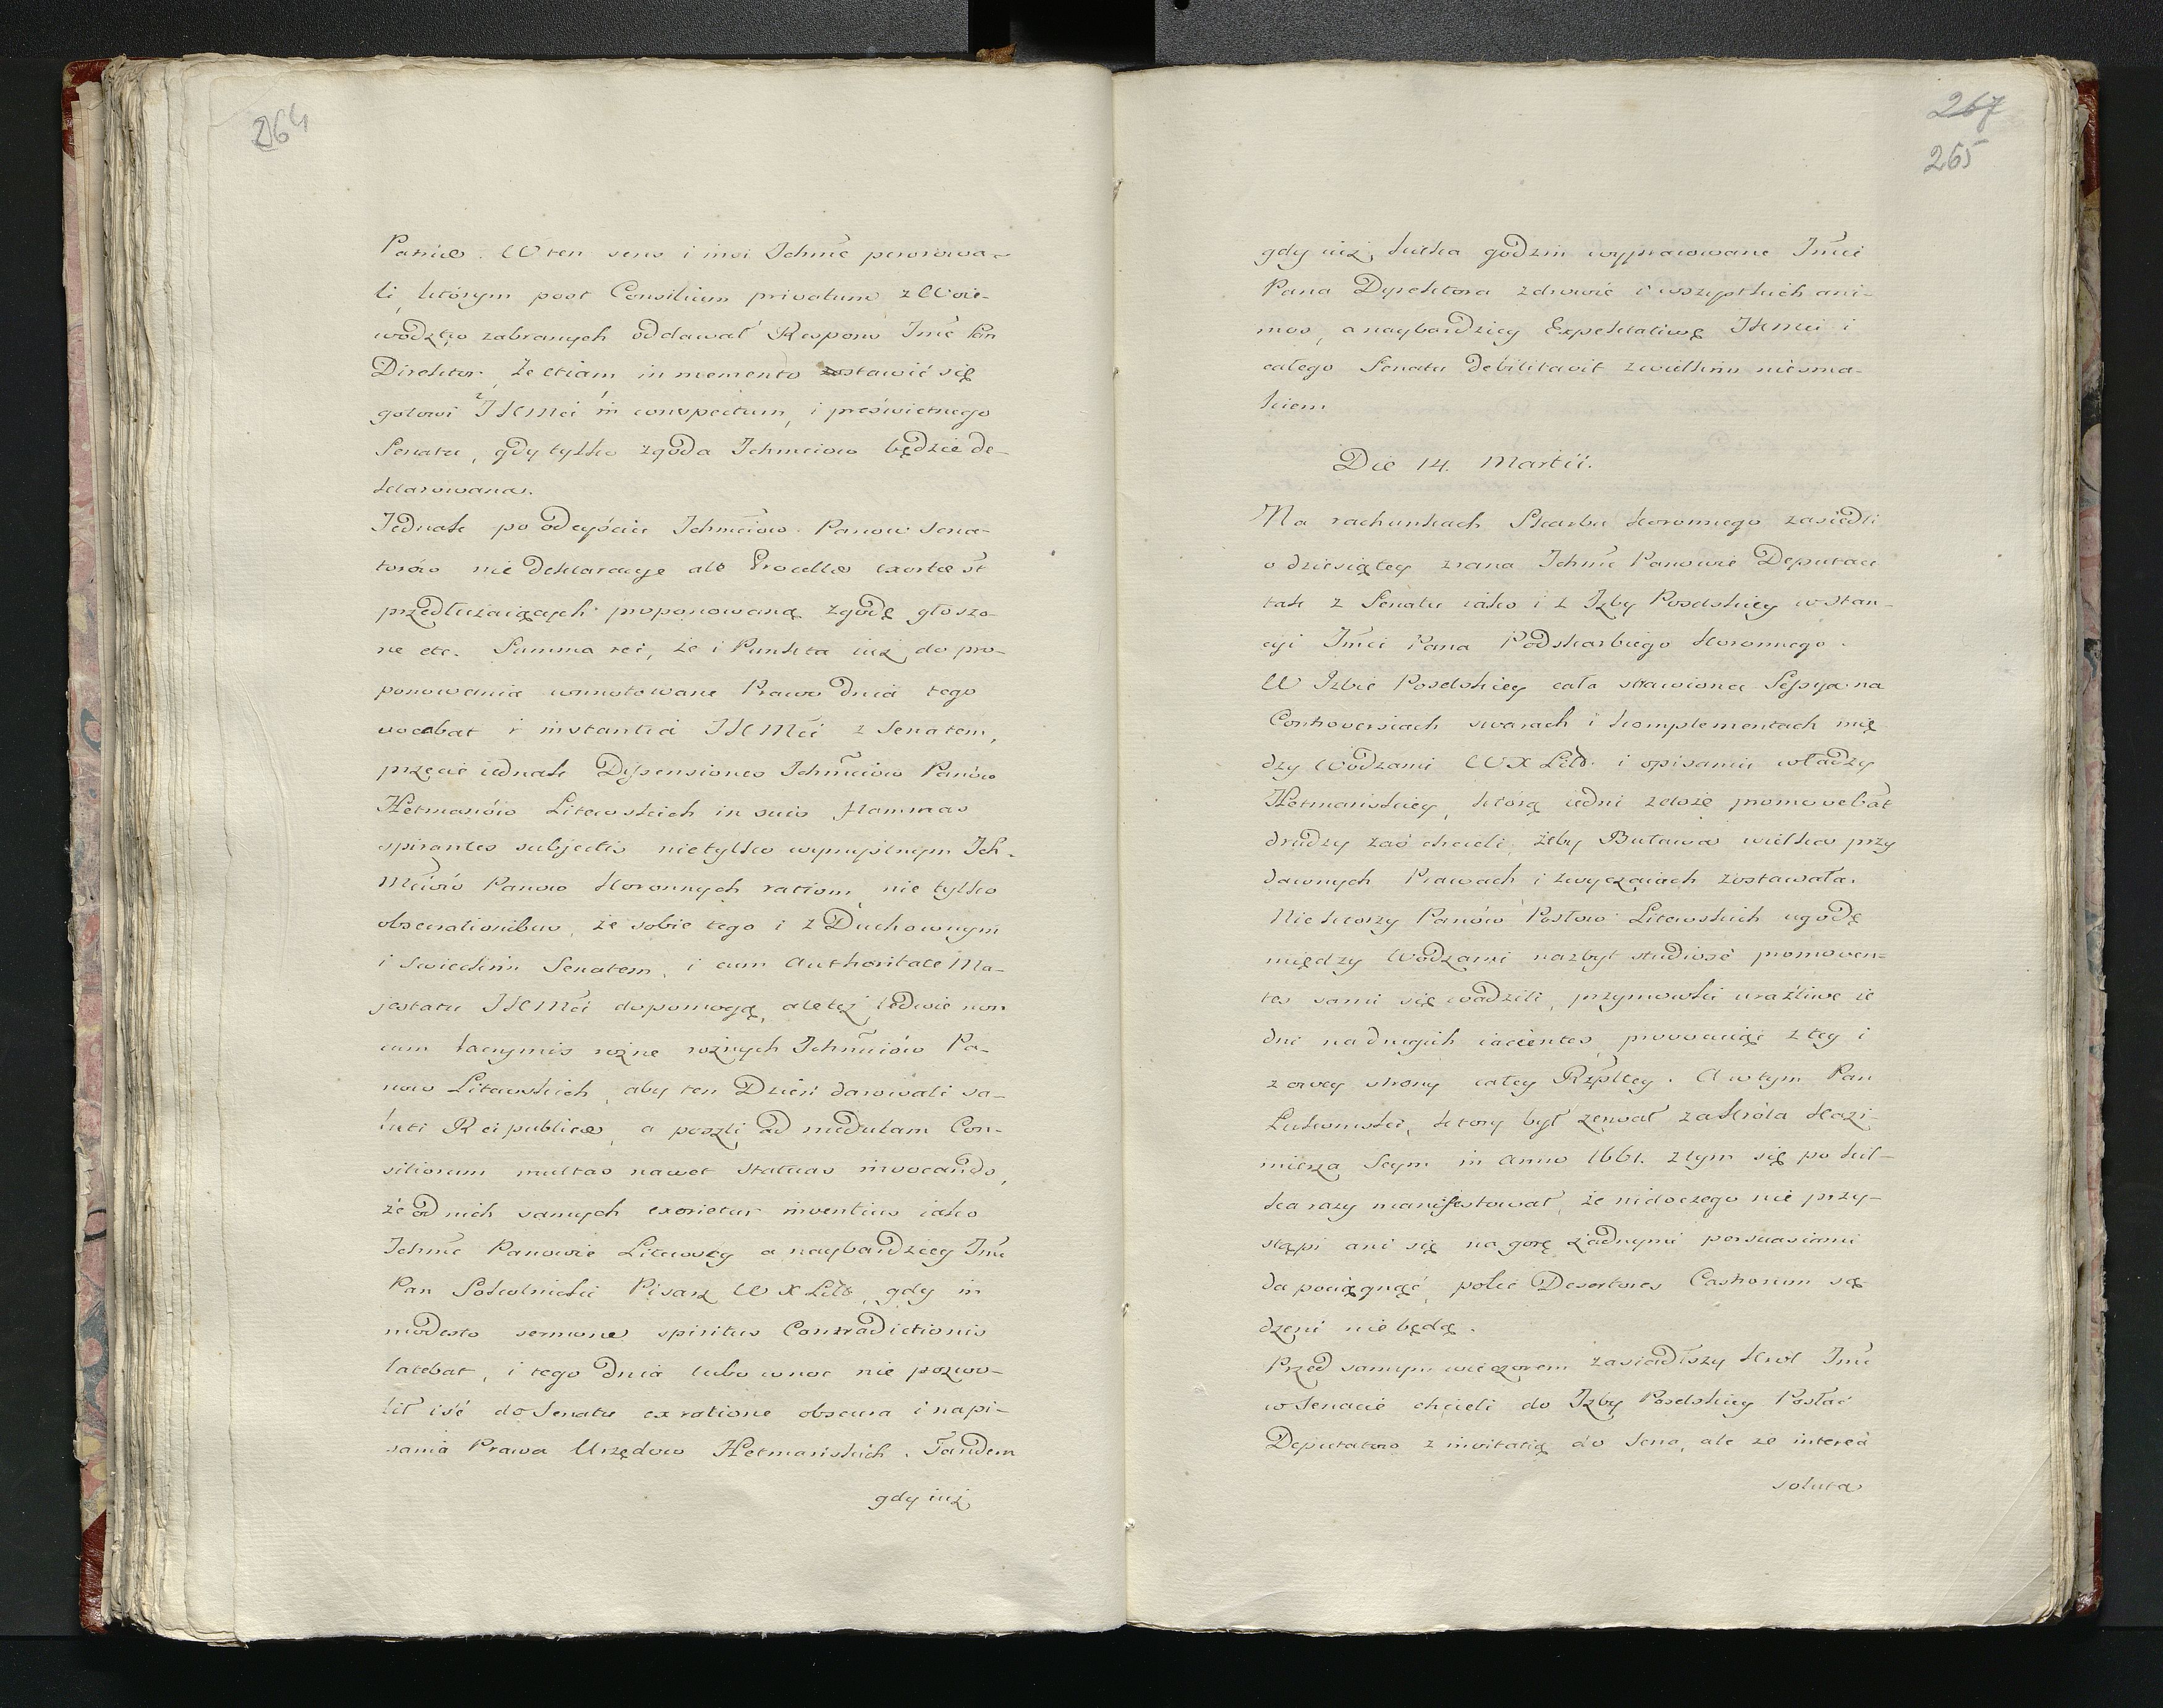 264
Patriæ. W ten sens i insi Ichmć perorowa-
li, którym post Consilium privatum z Woie-
wództw zabranych oddawał Respons Imć Pan
Direktor, że etiam in momento stawić się
gotowi JKMci in conspectum, i prześwietnego
Senatu, gdy tylko zgoda Ichmciow będzie de-
klarowana.
Jednak po odeyściu Ichmciow Panow Sena-
torów nie deklaracye ale Procellæ exortæ st
przedłużaiących proponowaną zgodę głoszo-
ne etc. Summa rei, że i Punkta iuż do pro-
ponowania connotowane Prawo dnia tego
vocabat i instantia JKMci z Senatem,
przecie iednak Dissensiones Ichmciow Panów
Hetmanów Litewskich in suis flammas
spirantes subjectis nie tylko wymyślnym Ich-
Mciów Panow Koronnych rationi, nie tylko
obsecrationibus, że sobie tego i z Duchownym
i Swieckim Senatem, i cum Authoritate Ma-
jestatu JKMci dopomogą, ale też ledwie non
cum lacrymis rożne rożnych Ichmciów Pa-
now Litewskich, aby ten Dzień darowali sa-
luti Reipublicæ, a poszli ad medulam Con-
siliorum multas nawet Statuas invocando,
że od nich samych exorietur inventius iako
Ichmć Panowie Litewscy a naybardziey Imć
Pan Sokolnicki Pisarz W X Litt, gdy in
modesto sermone spiritus Contradictionis
latebat, i tego dnia lubo w noc nie pozwo-
lił iść do Senatu ex ratione obscura i napi-
sania Prawa Urzędow Hetmańskich. Tandem
gdy iuż
267
265
gdy iuż kilka godzin wypracowane Imci
Pana Dyrektora zdrowie i wszystkich ani-
mos, a naybardziey Expektatiwę JKMci i
całego Senatu debilitavit z wielkim niesma-
kiem
Die 14. Martii.
Na rachunkach Skarbu Koronnego zasiedli
o dziesiątey zrana Ichmć Panowie Deputaci
tak z Senatu iako i z Izby Poselskiey w Stan-
cyi Imci Pana Podskarbiego Koronnego.
W Izbie Poselskiey cała strawiona Sessya na
Controversiach swarach i komplementach mię
dzy Wodzami W X Litt. i opisaniu władzy
Hetmańskiey, którą iedni zelose promovebat
drudzy zaś chcieli, żeby Buława wielka przy
dawnych Prawach i zwyczaiach zostawała.
Niektorzy Panów Posłow Litewskich ugodę
między Wodzami nazbyt studiose promoven-
tes sami się wadzili, przymowki uraźliwe ie
dni na drugich iacientes, provocuiąc z tey i
z owey strony całey Rzpltey. A w tym Pan
Łukomski, ktory był zerwał za Króla Kazi-
mierza Seym in Anno 1661. z tym się po kil-
ka razy manifestował, że ni do czego nie przy-
stąpi ani się na gorę żadnymi persuasiami
da pociągnąć, poki Desertores Castrorum są-
dzeni nie będą.
Przed samym wieczorem zasiadłszy Krol Imć
w Senacie chcieli do Izby Poselskiey Posłać
Deputatow z invitatią do Sena, ale że intereà
soluta